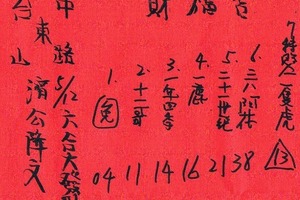 財福
中路
5/12 六合大發
台東山
濟公降文
1.
2. 十一哥
3. 一年四季
4. 一鹿
5. 二十一世紀
6. 三八阿花
7 一隻虎
04 11 14 16 21 38
13